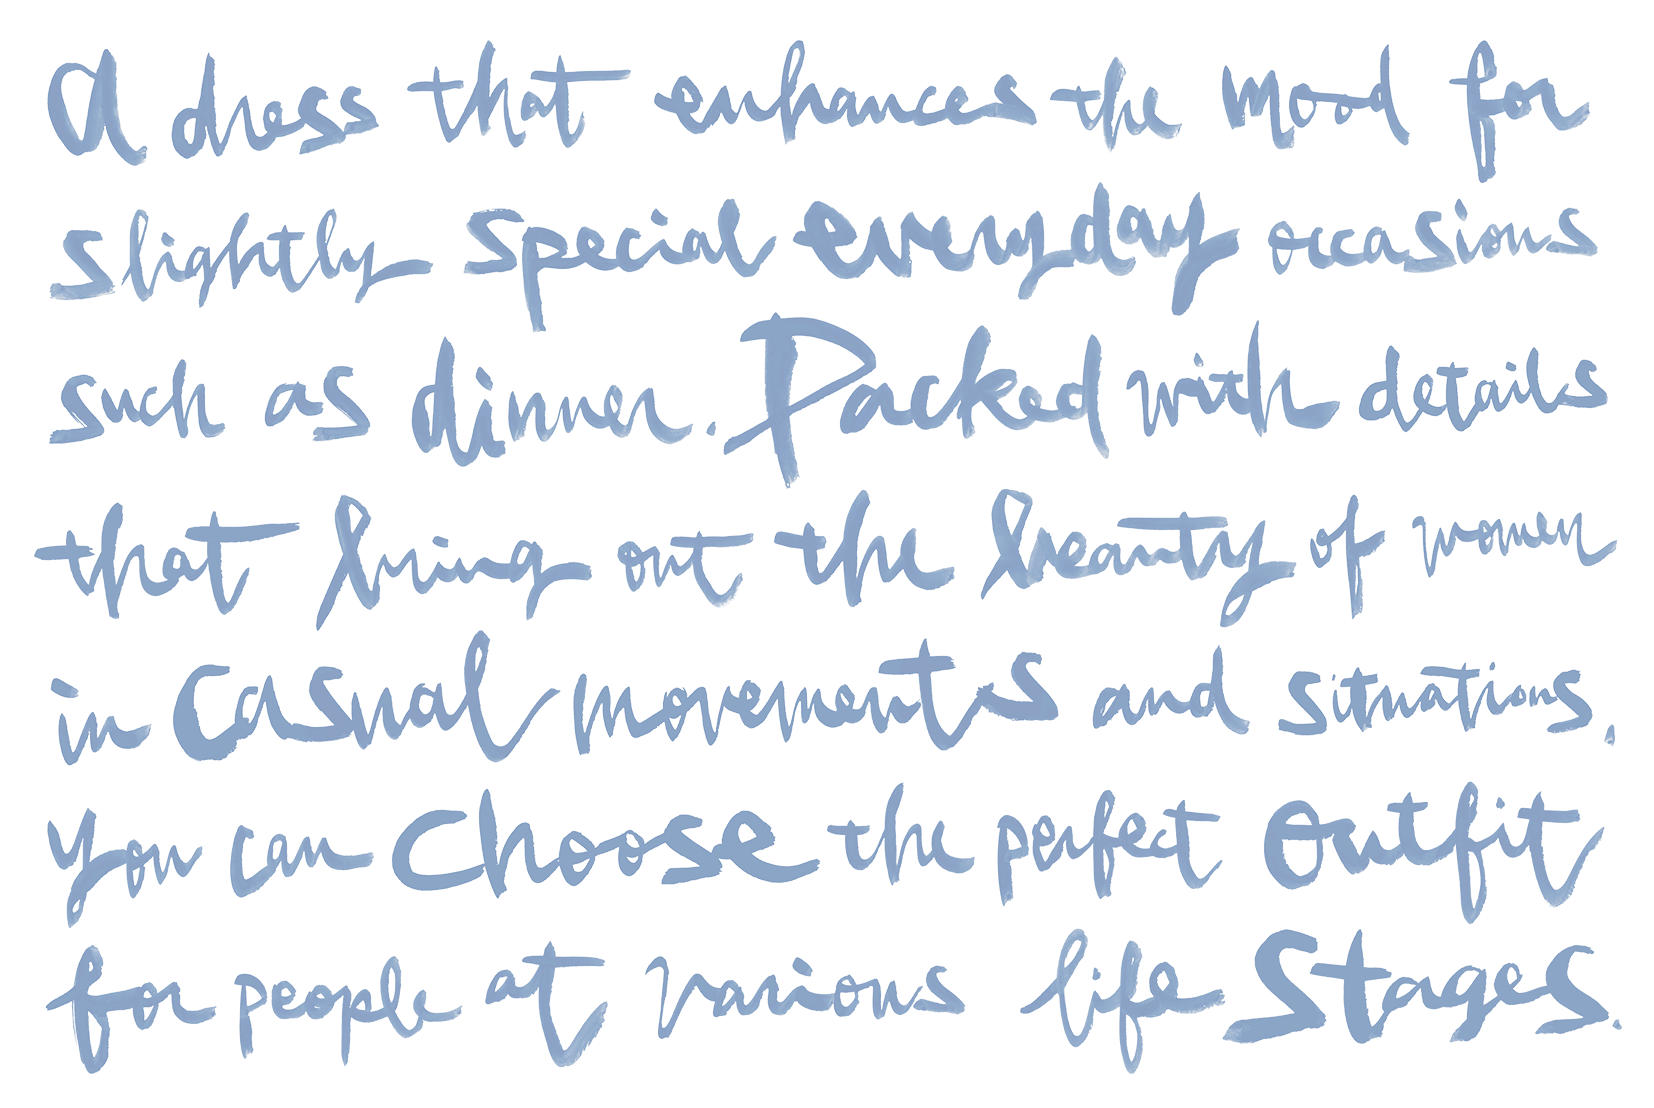 A dress that enhances the mood for
slightly special everyday occasions
such as dinner. Packed with details
that bring out the beauty of women
in casual movements and situations.
You can choose the perfect outfit
for people at various life stages.